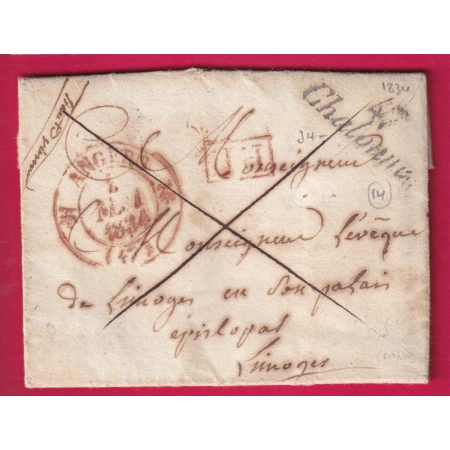 1834
47
Chalonnes
34-
P.P.
ANGERS
MAI
1834
(47)
14
Monseigneur
Monseigneur L'évêque
de Limoges en son palais
épiscopal
Limoges